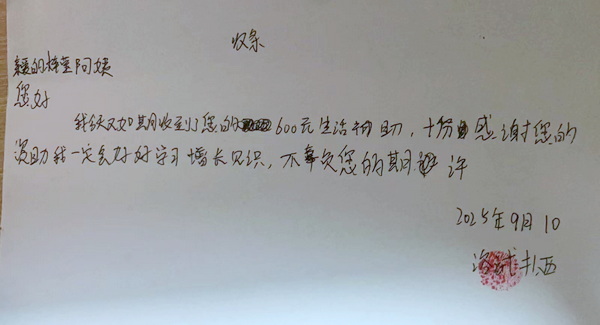 收条
亲爱的梓萱阿姨
您好
我今天又如期收到了您的600元生活补助，十分感谢您的
资助我一定会好好学习增长见识，不辜负您的期许
2025年9月10
洛绒扎西